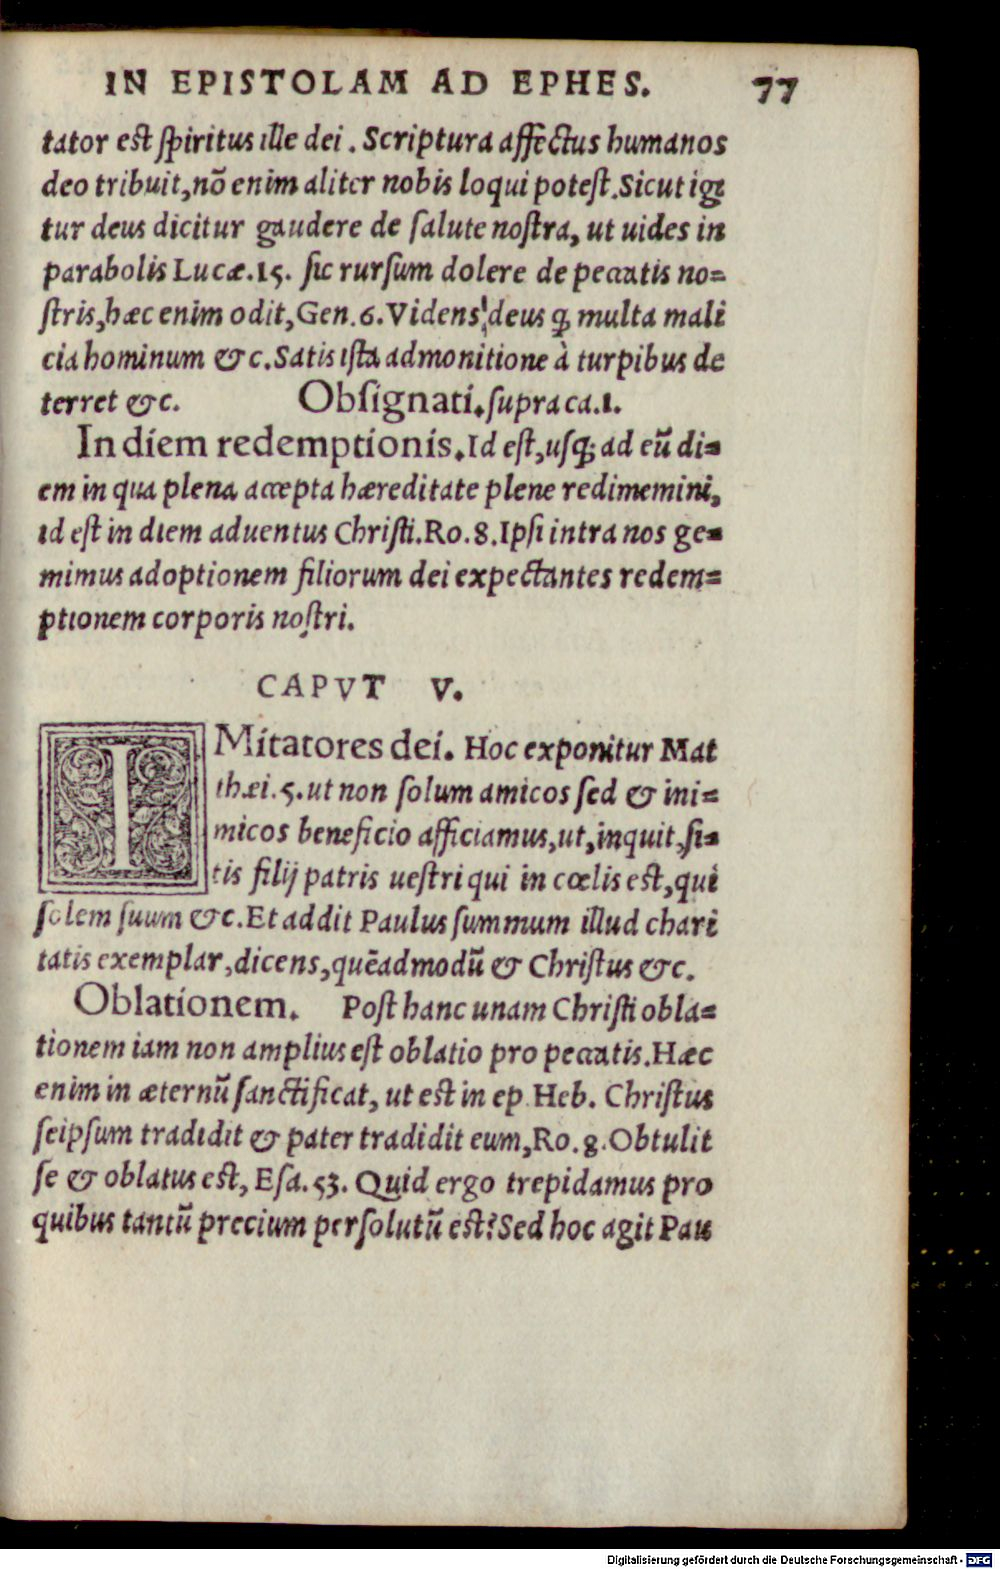 IN EPISTOLAM AD EPHES. 77
tator est spiritus ille dei. Scriptura affectus humanos
deo tribuit, nõ enim aliter nobis loqui potest. Sicut igi
tur deus dicitur gaudere de salute nostra, ut uides in
parabolis Lucæ. 15. sic rursum dolere de peccatis no=
stris, hæc enim odit, Gen. 6. Videns deus ꝙ multa mali
cia hominum &c. Satis ista admonitione à turpibus de
terret &c. Obsignati. supra ca. 1.
In diem redemptionis. Id est, usq; ad eũ di=
em in qua plena accepta hæreditate plene redimemini,
id est in diem aduentus Christi. Ro. 8. Ipsi intra nos ge=
mimus adoptionem filiorum dei expectantes redem=
ptionem corporis nostri.
CAPVT V.
IMitatores dei. Hoc exponitur Mat
thæi. 5. ut non solum amicos sed & ini=
micos beneficio afficiamus, ut, inquit, si=
tis filij patris uestri qui in cœlis est, qui
solem suum &c. Et addit Paulus summum illud chari
tatis exemplar, dicens, quẽadmodũ & Christus &c.
Oblationem. Post hanc unam Christi obla=
tionem iam non amplius est oblatio pro peccatis. Hæc
enim in æternũ sanctificat, ut est in ep. Heb. Christus
seipsum tradidit & pater tradidit eum, Ro. 8. Obtulit
se & oblatus est, Esa. 53. Quid ergo trepidamus pro
quibus tantũ precium persolutũ est? Sed hoc agit Pau
Digitalisierung gefördert durch die Deutsche Forschungsgemeinschaft - DFG